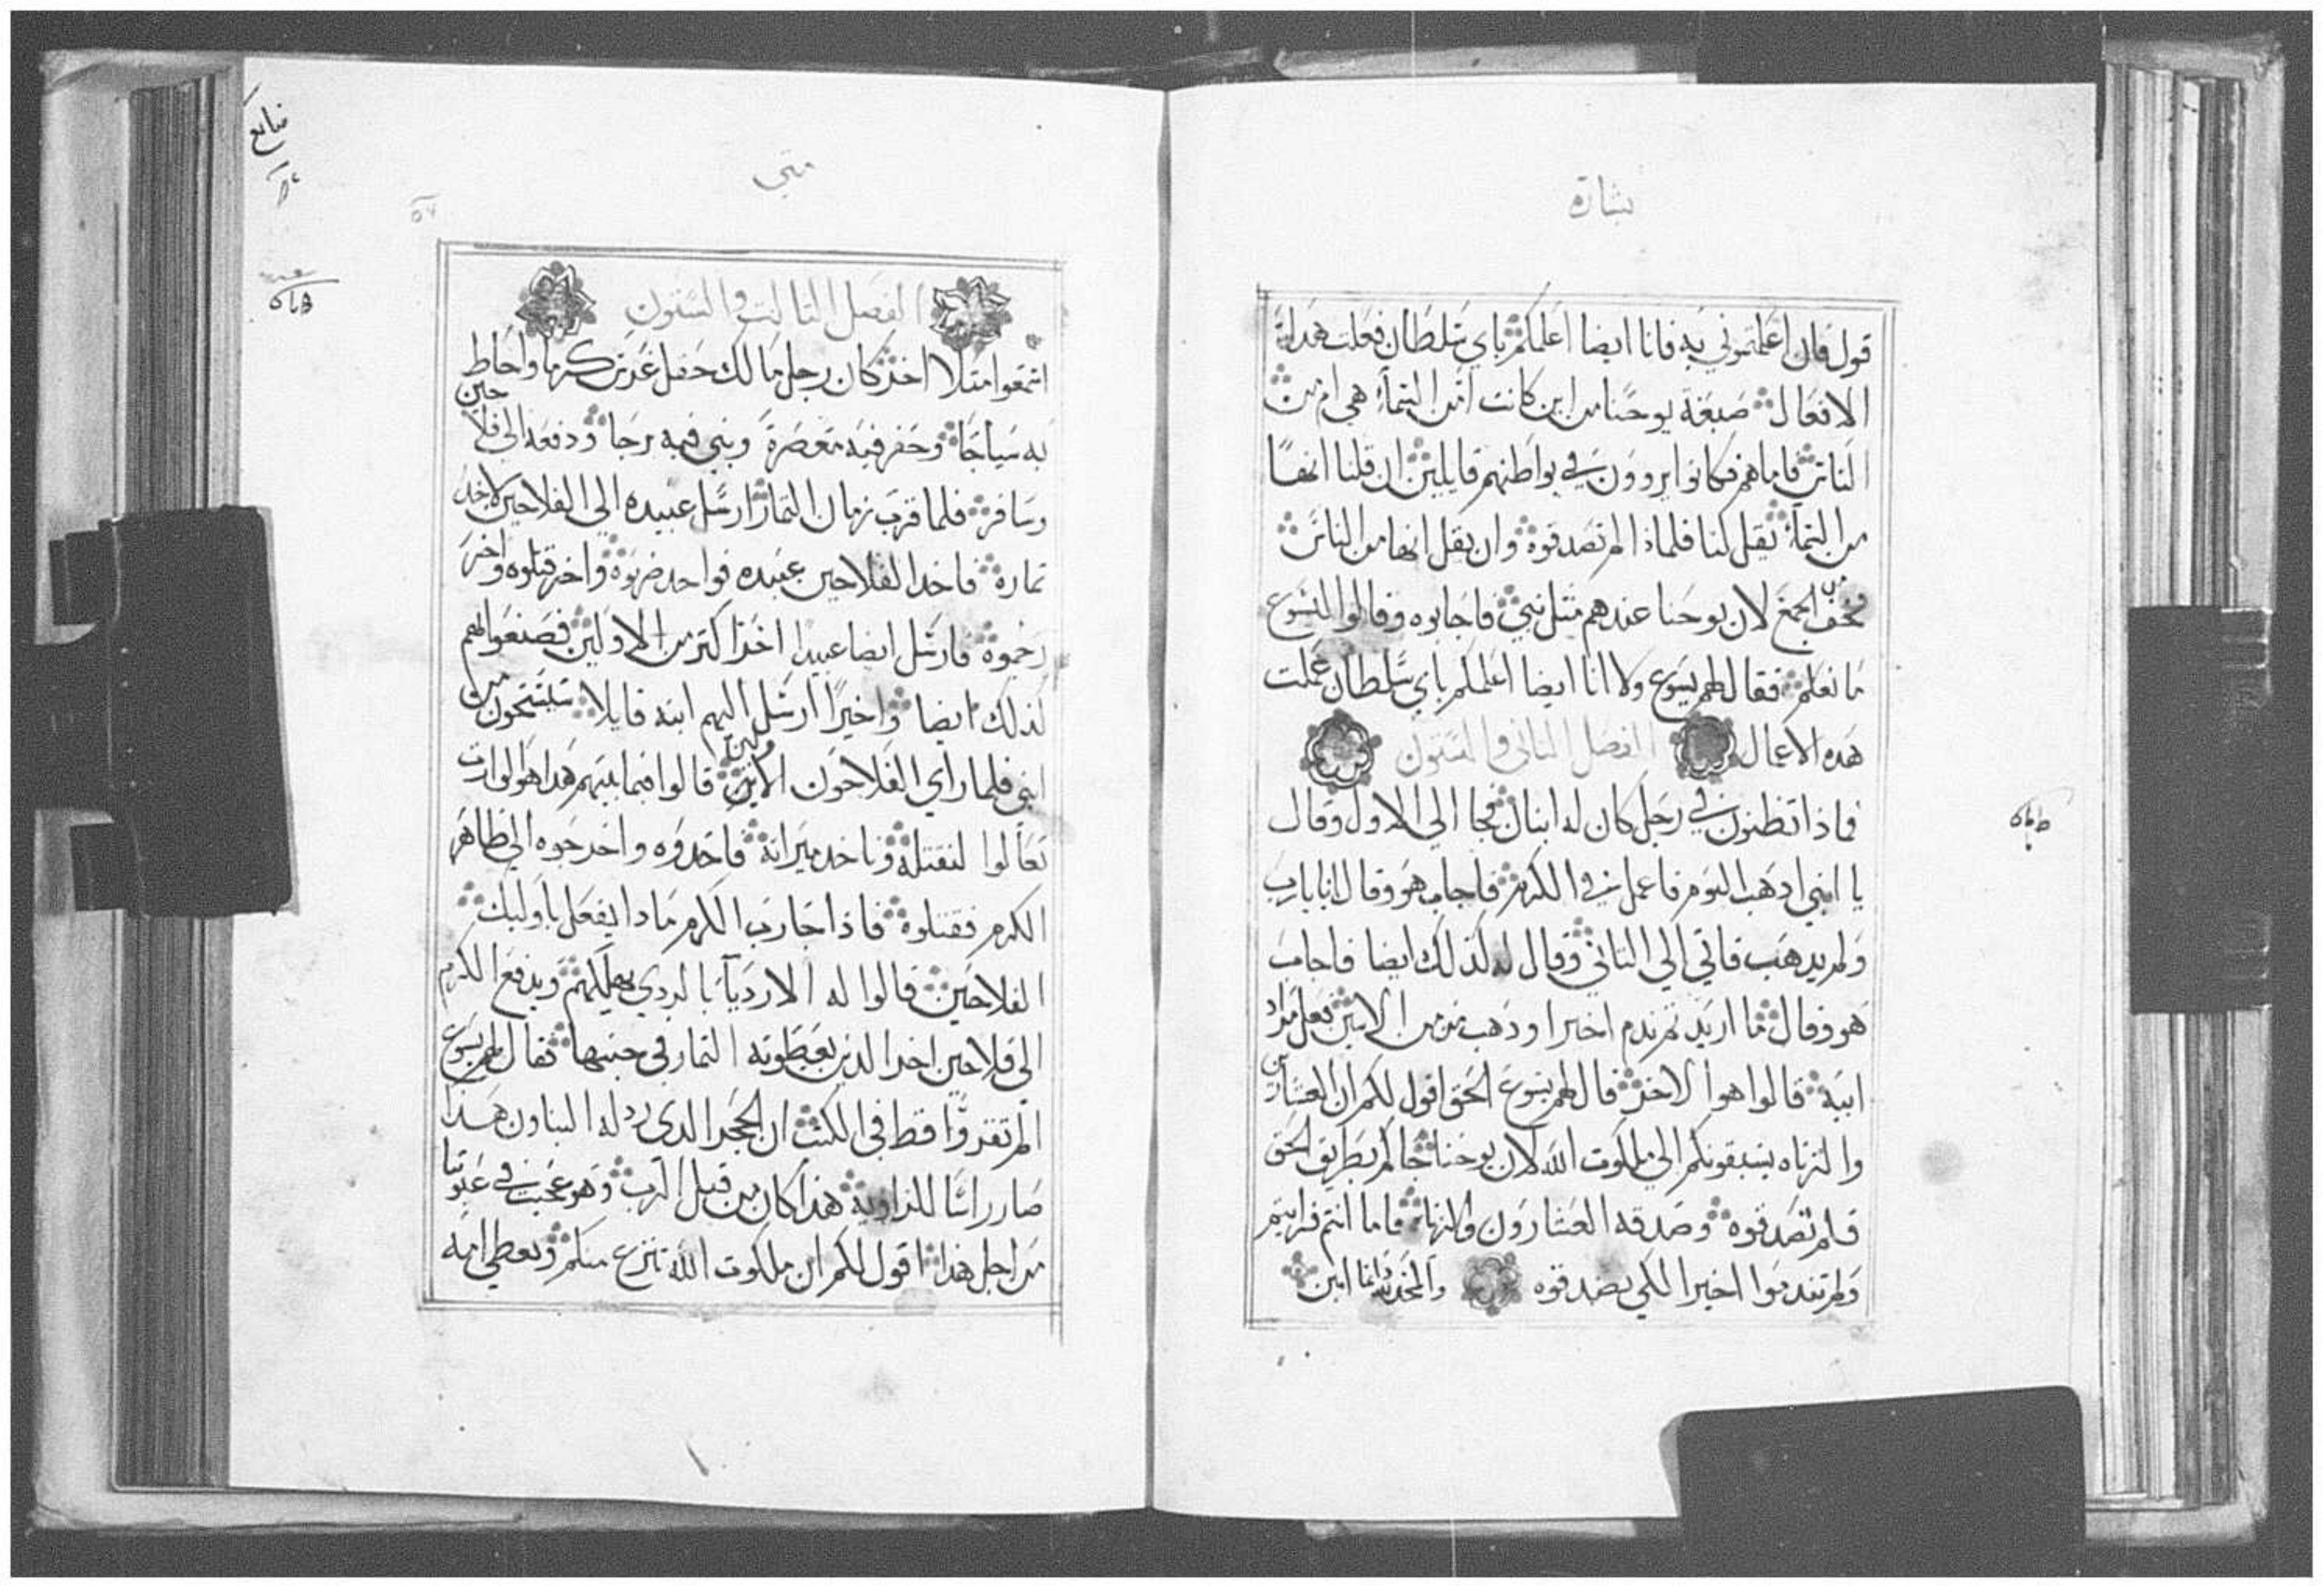 بشارة
قول فان اعلمتموني به فانا ايضا اعلمكم باي سلطان فعلت هده
الافعال صبغة يوحنا من اين كانت امن السمآء هي ام من
الناس فاما هم فكانوا يروون في بواطنهم قايلين ان قلنا انها
من السمآء يقل لنا فلماذا لم تصدقوه وان نقل انها من الناس
نخف الجمع لان يوحنا عندهم مثل نبي فاجابوه وقالوا ليسوع
ما نعلم فقال لهم يسوع ولا انا ايضا اعلمكم باي سلطان عملت
هده الاعمال الفصل الثاني والستون
فماذا تظنون في رجل كان له ابنان فجا الي الاول وقال
يا ابني ادهب اليوم فاعمل في الكرم فاجاب هو وقال انا يارب
ولم يدهب فاتي الي الثاني وقال له كذلك ايضا فاجاب
هو وقال ما اريد ثم ندم اخيرا ودهب من من الاثنين فعل مراد
ابيه قالوا هو الاخر قال لهم يسوع الحق اقول لكم ان العشارين
والزناه يسبقونكم الي ملكوت الله لان يوحنا جاكم بطريق الحق
فلم تصدقوه وصدقه العشارون والزناة فاما انتم فرايتم
ولم تندموا اخيرا لكي تصدقوه والمجد لله دايما امين
متي
الفصل الثالث والستون
اسمعوا مثلا اخر كان رجل مالك حقل غرس كرما واحاط
به سياجا وحفر فيه معصرة وبني فيه برجا ودفعه الي فلاحين
وسافر فلما قرب زمان الثمار ارسل عبيده الي الفلاحين لاخد
ثماره فاخد الفلاحين عبيده فواحد ضربوه واخر قتلوه واخر
رجموه فارسل ايضا عبيدا اخر اكثر من الاولين فصنعوا لهم
كذلك ايضا واخيرًا ارسل اليهم ابنه قايلا يستحون من
ابني فلما راي الفلاحون الابن قالوا فيما بينهم هدا هو الوارث
تعالوا لنقتله وناخد ميراثه فاخدوه واخرجوه الي ظاهر
الكرم فقتلوه فاذا جا رب الكرم مادا يفعل باوليك
الفلاحين قالوا له الاردياء بالردي يهلكهم ويدفع الكرم
الي فلاحين اخر الذين يعطونه الثمار في حينها فقال لهم يسوع
الم تقروا قط في الكتب ان الحجر الدي ردله البناون هذا
صار راسًا للزاوية هذا كان من قبل الرب وهو عجيب في عيوننا
من اجل هدا اقول لكم ان ملكوت الله تنزع منكم ويعطي امه